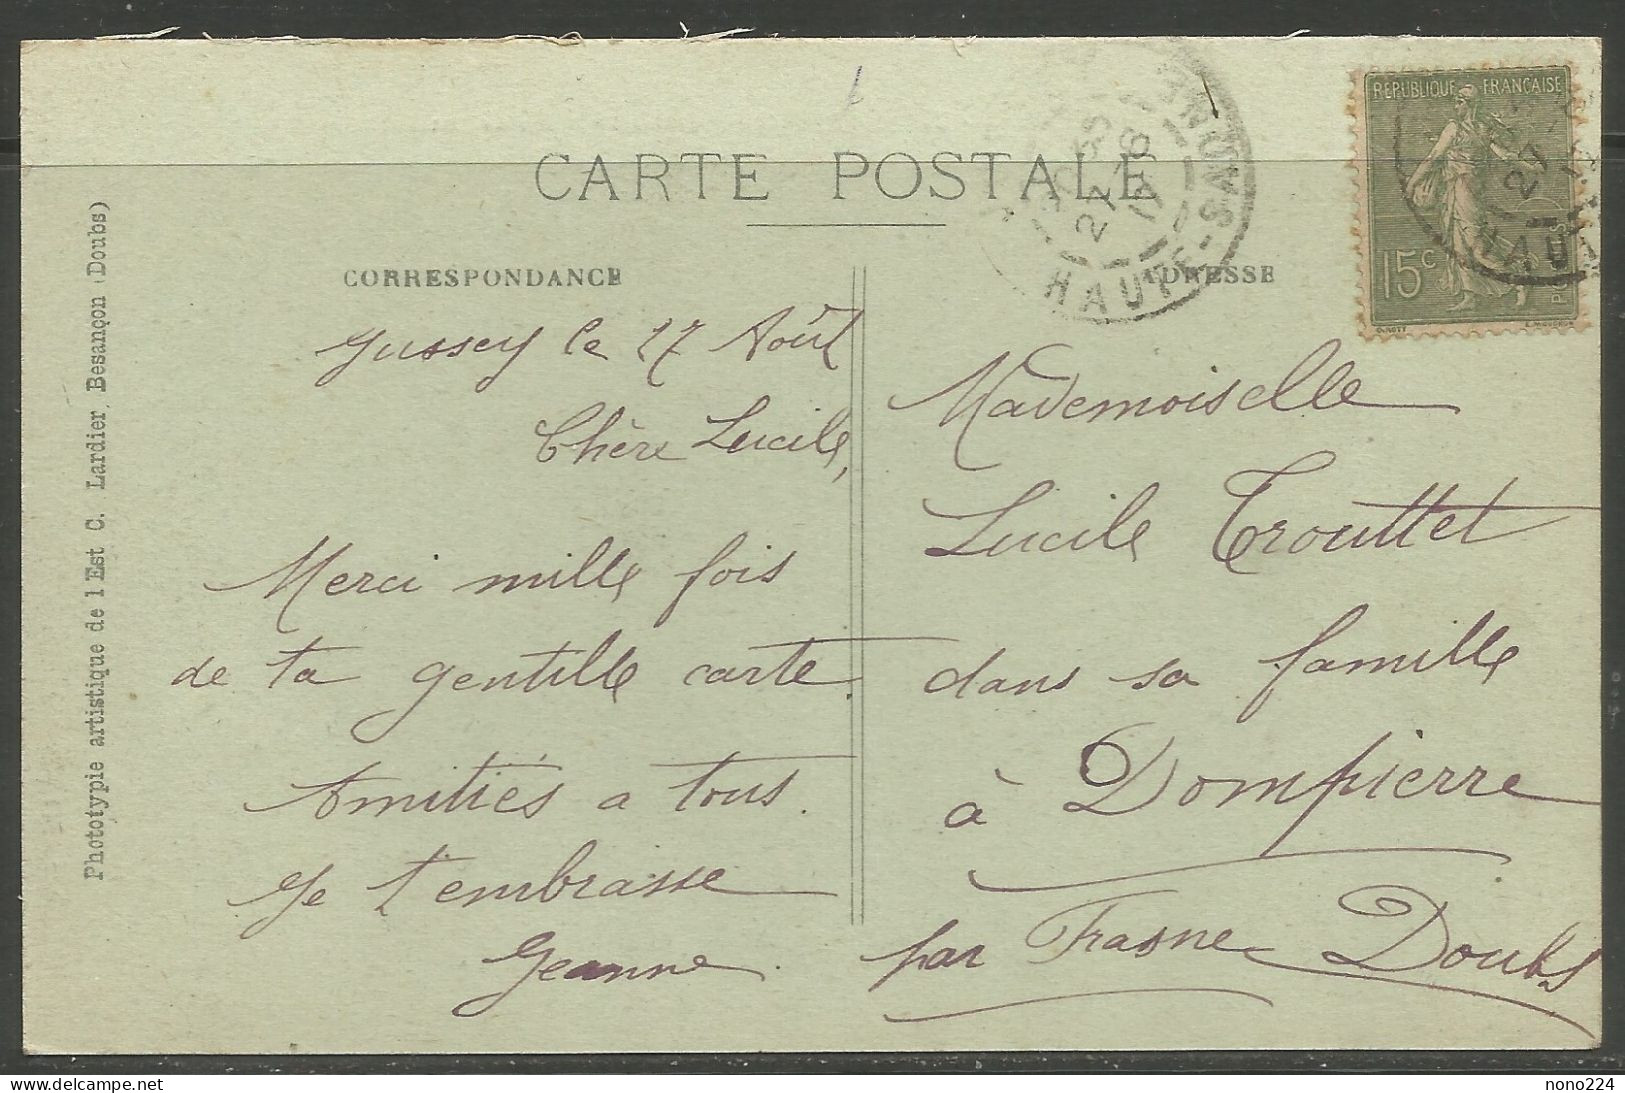 CARTE POSTALE
RÉPUBLIQUE FRANÇAISE
15c
HAUTE-SAÔNE
27
HAUT
CORRESPONDANCE
Jussey le 27 Août
Chère Lucile,
Merci mille fois
de ta gentille carte.
Amitiés a tous.
Je t'embrasse
Jeanne.
ADRESSE
Mademoiselle
Lucile Trouttet
dans sa famille
à Dompierre
par Frasne Doubs
Phototypie artistique de l'Est C. Lardier, Besançon (Doubs)
nono224